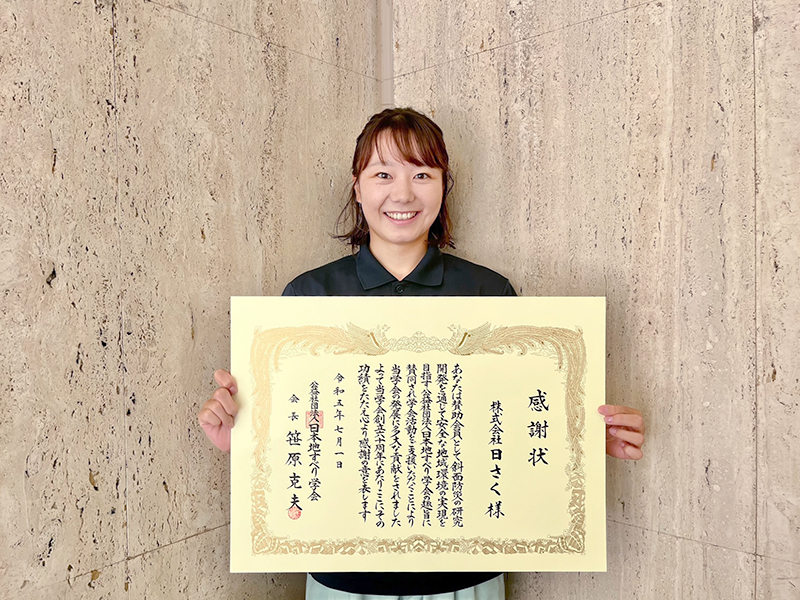 感謝状
株式会社日さく 様
あなたは賛助会員として斜面防災の研究
開発を通じて安全な地域環境の実現を
目指す公益社団法人日本地すべり学会の趣旨に
賛同され学会活動をご支援いただくことにより
当学会の発展に多大な貢献をされました
よって当学会創立六十周年にあたりここにその
功績をたたえ心より感謝の意を表します
令和五年七月一日
公益社団法人日本地すべり学会
会長 笹原克夫